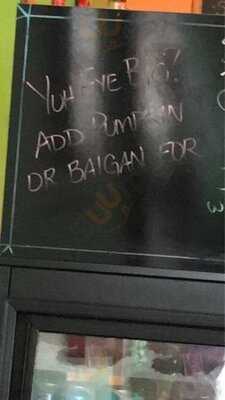 YUH EYE BIG?
ADD PUMPKIN
OR BAIGAN FOR